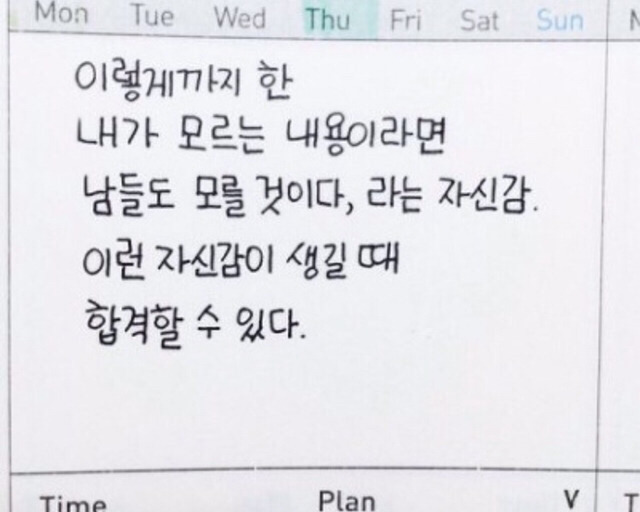 Mon Tue Wed Thu Fri Sat Sun
이렇게까지 한
내가 모르는 내용이라면
남들도 모를 것이다, 라는 자신감.
이런 자신감이 생길 때
합격할 수 있다.
Time Plan V